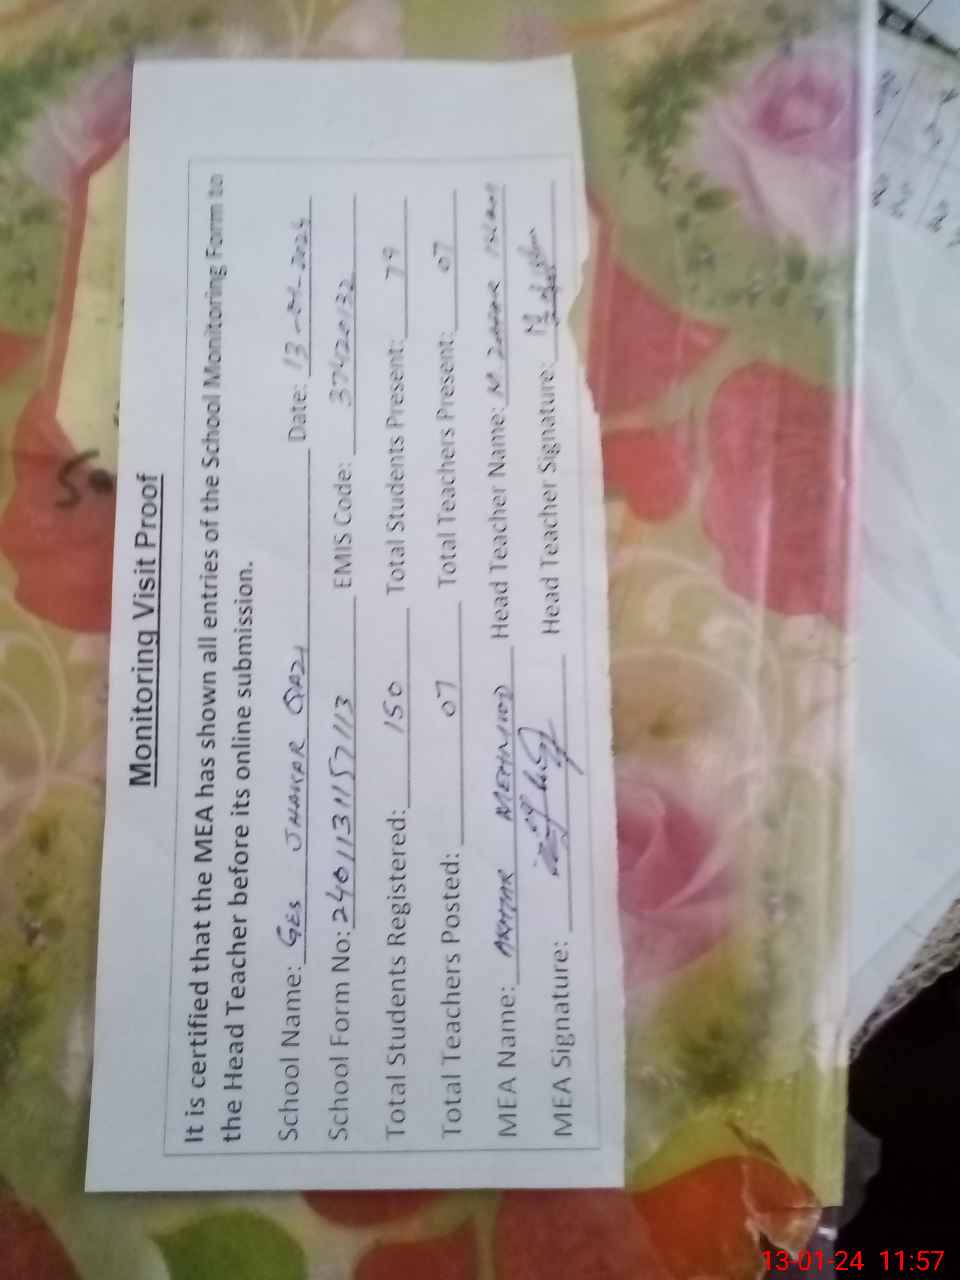 Monitoring Visit Proof
It is certified that the MEA has shown all entries of the School Monitoring Form to
the Head Teacher before its online submission.
School Name: GES JHAKAR QAZI Date: 13-01-2024
School Form No: 2401131157113 EMIS Code: 37420132
Total Students Registered: 150 Total Students Present: 79
Total Teachers Posted: 07 Total Teachers Present: 07
MEA Name: AKHTAR MEHMOOD Head Teacher Name: M. ZAFAR ISLAM
MEA Signature: Head Teacher Signature:
13-01-24 11:57